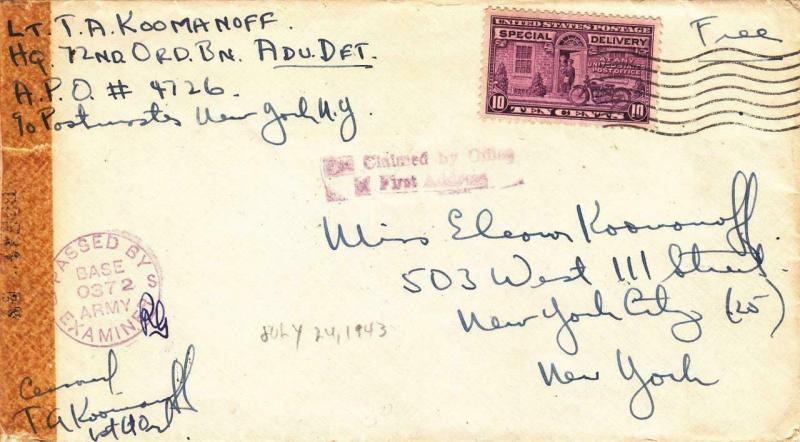 LT. T. A. KOOMANOFF
HQ. 72ND. ORD. BN. ADV. DET.
A. P. O. # 4726.
c/o Postmaster New York N.Y.
UNITED STATES POSTAGE
SPECIAL DELIVERY
AT ANY
UNITED STATES
POST OFFICE
10 TEN CENTS 10
Free
Claimed by Office
First Address
Miss Eleanor Koomanoff
503 West 111 Street
New York City (25)
New York
PASSED BY
BASE
0372
ARMY
EXAMINER
RG
JULY 24, 1943
Censored
T A Koomanoff